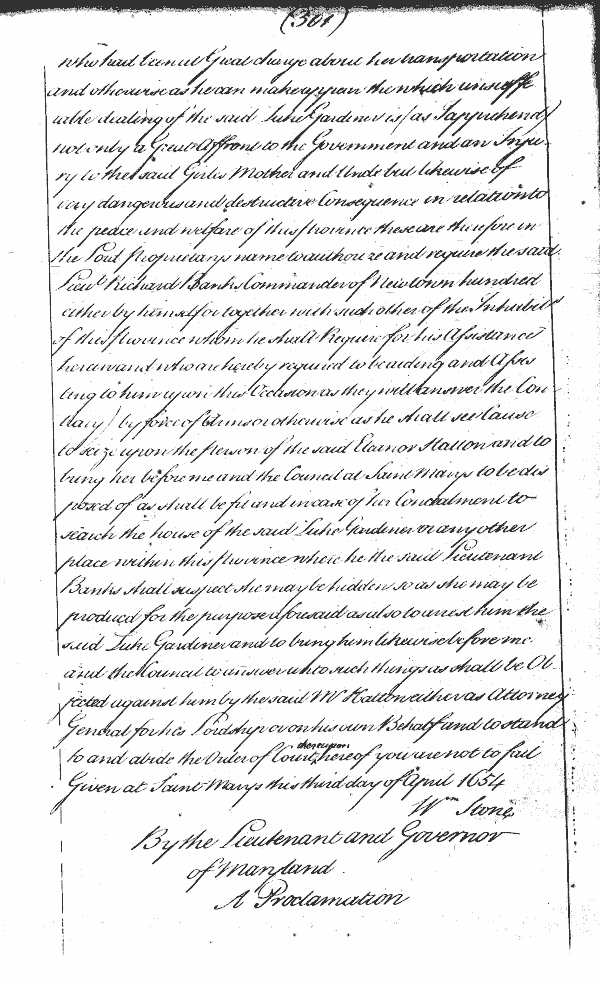 (301)
who had been at Great charge about her transportation
and otherwise as he can make appear the which unsuffe
rable dealing of the said Luke Gardiner is (as I apprehend)
not only a Great Affront to the Government and an Inju-
ry to the said Girles Mother and Uncle but likewise of
very dangerous and destructive Consequence in relation to
the peace and welfare of this province these are therefore in
the Lord Proprietarys name to authorize and require the said
Lieut Richard Banks Commander of Newtown hundred
either by himself or together with such other of the Inhabitts
of this province whom he shall Require for his Assistance
herein and who are hereby required to be aiding and Assis
ting to him upon this Occasion as they will answer the Con
trary) by force of Arms or otherwise as he shall see Cause
to seize upon the person of the said Eleanor Hatton and to
bring her before me and the Council at Saint Marys to be dis
posed of as shall be fit and in case of her Concealment to
search the house of the said Luke Gardiner or any other
place within this province where he the said Lieutenant
Banks shall suspect she may be hidden so as she may be
produced for the purpose aforesaid as also to arrest him the
said Luke Gardiner and to bring him likewise before me
and the Council to answer unto such things as shall be Ob-
jected against him by the said Mr Hatton either as Attorney
General for his Lordship or on his own Behalf and to stand
to and abide the Order of Court thereupon hereof you are not to fail
Given at Saint Marys this third day of April 1654
Wm Stone
By the Lieutenant and Governor
of Maryland
A Proclamation